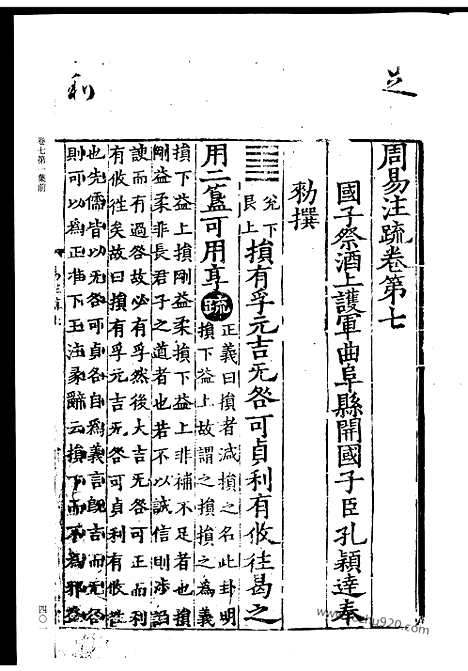 足
利
周易注疏卷第七
國子祭酒上護軍曲阜縣開國子臣孔穎達奉
勑撰
兌下
艮上
損有孚元吉无咎可貞利有攸往曷之
用二簋可用享
疏
正義曰損者減損之名此卦明
損下益上故謂之損損之為義
損下益上損剛益柔損下益上非補不足者也損
剛益柔非長君子之道者也若不以誠信則涉諂
諛而有過咎故必有孚然後大吉无咎可正而利
有攸往矣故曰損有孚元吉无咎可貞利有攸往
也先儒皆以无咎可貞各自爲義言旣吉而无咎
則可以爲正准下王注彖辭云損下而不爲邪益
卷七第一葉前
四〇一